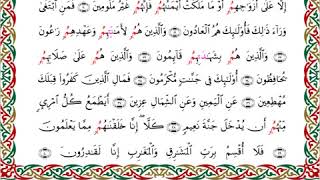 إِلَّا عَلَىٰٓ أَزْوَٰجِهِمْ أَوْ مَا مَلَكَتْ أَيْمَٰنُهُمْ فَإِنَّهُمْ غَيْرُ مَلُومِينَ فَمَنِ ٱبْتَغَىٰ
وَرَآءَ ذَٰلِكَ فَأُو۟لَٰٓئِكَ هُمُ ٱلْعَادُونَ وَٱلَّذِينَ هُمْ لِأَمَٰنَٰتِهِمْ وَعَهْدِهِمْ رَٰعُونَ
وَٱلَّذِينَ هُم بِشَهَٰدَٰتِهِمْ قَآئِمُونَ وَٱلَّذِينَ هُمْ عَلَىٰ صَلَاتِهِمْ
يُحَافِظُونَ أُو۟لَٰٓئِكَ فِى جَنَّٰتٍ مُّكْرَمُونَ فَمَالِ ٱلَّذِينَ كَفَرُوا۟ قِبَلَكَ
مُهْطِعِينَ عَنِ ٱلْيَمِينِ وَعَنِ ٱلشِّمَالِ عِزِينَ أَيَطْمَعُ كُلُّ ٱمْرِئٍ
مِّنْهُمْ أَن يُدْخَلَ جَنَّةَ نَعِيمٍ كَلَّآ إِنَّا خَلَقْنَٰهُم مِّمَّا يَعْلَمُونَ
فَلَآ أُقْسِمُ بِرَبِّ ٱلْمَشَٰرِقِ وَٱلْمَغَٰرِبِ إِنَّا لَقَٰدِرُونَ